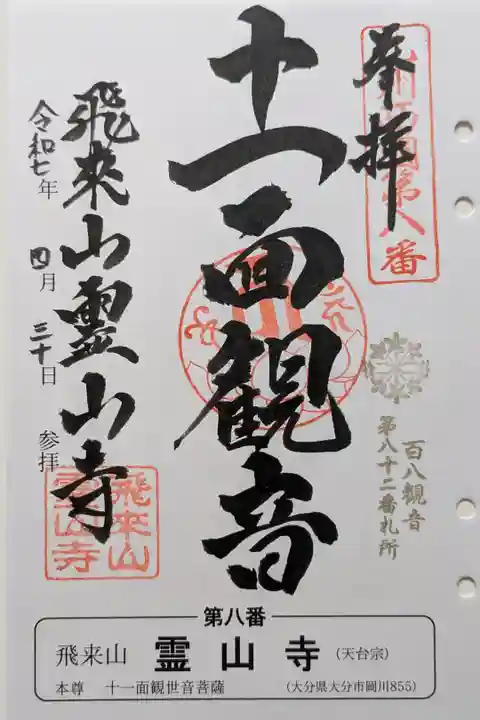 奉拝
九州西国第八番
百八観音
第八十二番札所
十一面観音
飛來山靈山寺
令和七年 四月 三十日 参拝
飛来山
霊山寺
第八番
飛来山 霊山寺 (天台宗)
本尊 十一面観世音菩薩 (大分県大分市岡川855)